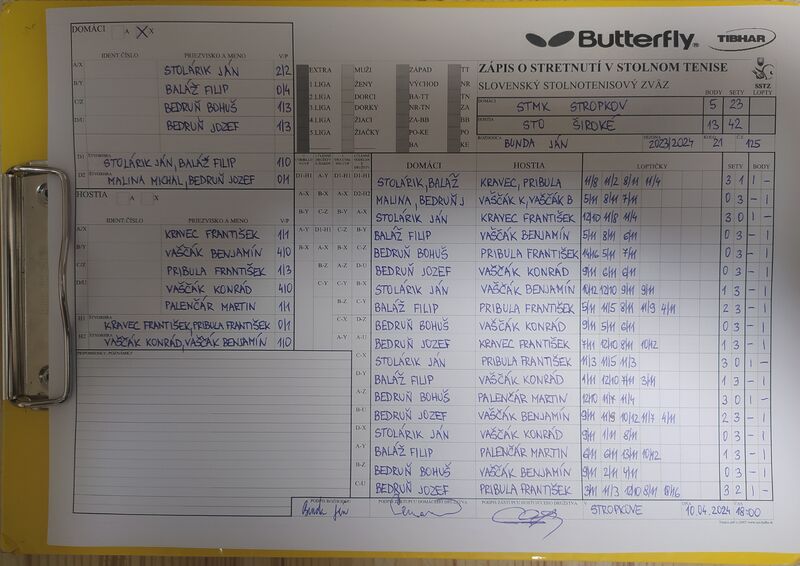 DOMÁCI A X
Butterfly TIBHAR
IDENT.ČÍSLO PRIEZVISKO A MENO V/P
A/X STOLÁRIK JÁN 2/2
B/Y BALÁŽ FILIP 0/4
C/Z BEDRUŇ BOHUŠ 1/3
D/U BEDRUŇ JOZEF 1/3
D1 ŠTVORHRA STOLÁRIK JÁN, BALÁŽ FILIP 1/0
D2 MALINA MICHAL, BEDRUŇ JOZEF 0/1
EXTRA MUŽI ZÁPAD TT
1.LIGA ŽENY VÝCHOD NR
2.LIGA DORCI BA-TT TN
3.LIGA DORKY NR-TN ZA
4.LIGA ŽIACI ZA-BB BB
5.LIGA ŽIAČKY PO-KE PO
BA KE
ZÁPIS O STRETNUTÍ V STOLNOM TENISE
SLOVENSKÝ STOLNOTENISOVÝ ZVÄZ
SSTZ
BODY SETY LOPTY
DOMÁCI STMK STROPKOV 5 23
HOSTIA STO ŠIROKÉ 13 42
ROZHODCA BUNDA JÁN SEZÓNA 2023/2024 KOLO 21 Č.Z. 125
HOSTIA A X
IDENT.ČÍSLO PRIEZVISKO A MENO V/P
A/X KRAVEC FRANTIŠEK 1/1
B/Y VAŠČÁK BENJAMÍN 4/0
C/Z PRIBULA FRANTIŠEK 1/3
D/U VAŠČÁK KONRÁD 4/0
PALENČÁR MARTIN 1/1
H1 ŠTVORHRA KRAVEC FRANTIŠEK, PRIBULA FRANTIŠEK 0/1
H2 ŠTVORHRA VAŠČÁK KONRÁD, VAŠČÁK BENJAMÍN 1/0
PRIPOMIENKY, POZNÁMKY
DOMÁCI HOSTIA LOPTIČKY SETY BODY
STOLÁRIK, BALÁŽ KRAVEC, PRIBULA 11/8 11/2 8/11 11/4 3 1 1 -
MALINA, BEDRUŇ J VAŠČÁK K, VAŠČÁK B 5/11 8/11 7/11 0 3 - 1
STOLÁRIK JÁN KRAVEC FRANTIŠEK 12/10 11/8 11/4 3 0 1 -
BALÁŽ FILIP VAŠČÁK BENJAMÍN 5/11 8/11 6/11 0 3 - 1
BEDRUŇ BOHUŠ PRIBULA FRANTIŠEK 14/16 5/11 7/11 0 3 - 1
BEDRUŇ JOZEF VAŠČÁK KONRÁD 9/11 6/11 6/11 0 3 - 1
STOLÁRIK JÁN VAŠČÁK BENJAMÍN 10/12 12/10 9/11 9/11 1 3 - 1
BALÁŽ FILIP PRIBULA FRANTIŠEK 5/11 11/5 8/11 11/9 4/11 2 3 - 1
BEDRUŇ BOHUŠ VAŠČÁK KONRÁD 9/11 5/11 6/11 0 3 - 1
BEDRUŇ JOZEF KRAVEC FRANTIŠEK 7/11 12/10 8/11 10/12 1 3 - 1
STOLÁRIK JÁN PRIBULA FRANTIŠEK 11/3 11/5 11/3 3 0 1 -
BALÁŽ FILIP VAŠČÁK KONRÁD 1/11 12/10 7/11 3/11 1 3 - 1
BEDRUŇ BOHUŠ PALENČÁR MARTIN 12/10 11/7 11/4 3 0 1 -
BEDRUŇ JOZEF VAŠČÁK BENJAMÍN 9/11 11/9 10/12 11/7 4/11 2 3 - 1
STOLÁRIK JÁN VAŠČÁK KONRÁD 9/11 1/11 8/11 0 3 - 1
BALÁŽ FILIP PALENČÁR MARTIN 6/11 6/11 13/11 10/12 1 3 - 1
BEDRUŇ BOHUŠ VAŠČÁK BENJAMÍN 9/11 2/11 4/11 0 3 - 1
BEDRUŇ JOZEF PRIBULA FRANTIŠEK 3/11 11/3 12/10 8/11 18/16 3 2 1 -
PODPIS ROZHODCU PODPIS ZÁSTUPCU DOMÁCEHO DRUŽSTVA PODPIS ZÁSTUPCU HOSŤUJÚCEHO DRUŽSTVA
Bunda Ján V STROPKOVE DŇA 10.04.2024 ČAS 18:00